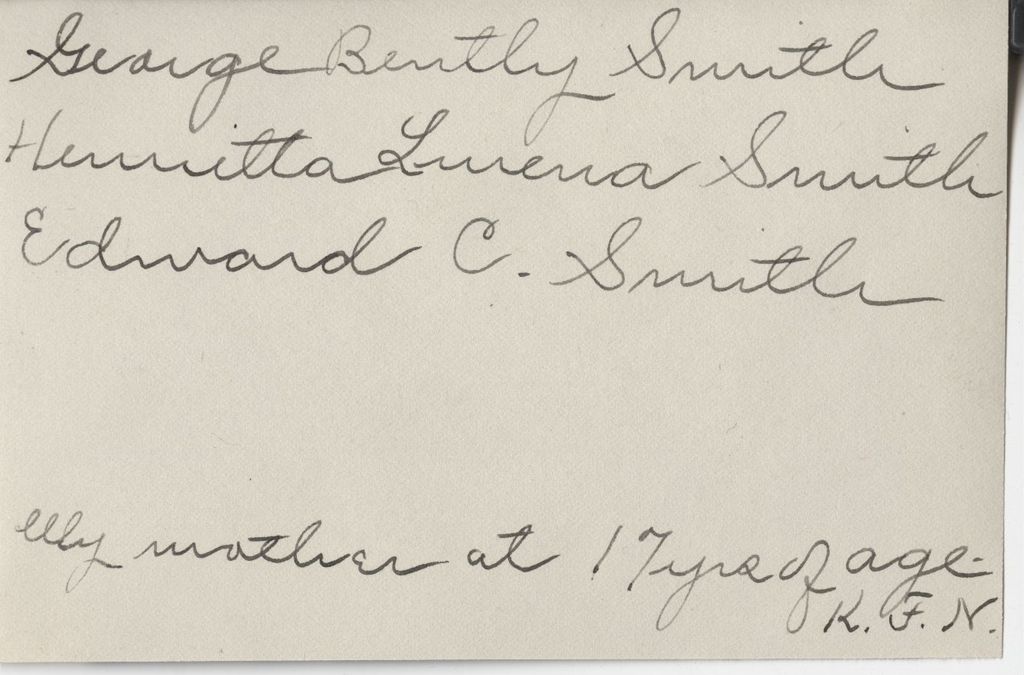 George Bently Smith
Henrietta Luvena Smith
Edward C. Smith
My mother at 17 yrs of age-
K. F. N.